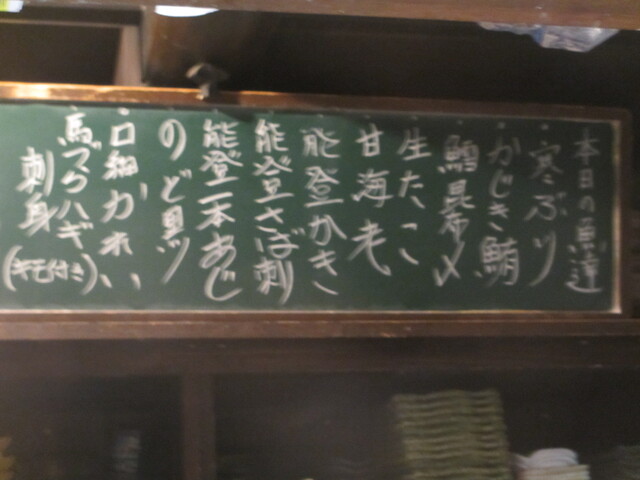 本日の魚達
寒ぶり
かじき鮪
鱈昆布〆
生たこ
甘海老
能登かき
能登さば刺
能登一本あじ
のど黒
口細かれい
馬ズラハギ
刺身
(キモ付き)